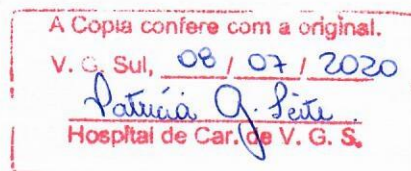 A Copia confere com a original.
V. G. Sul, 08 / 07 / 2020
Patrícia G. Leite
Hospital de Car. de V. G. S.